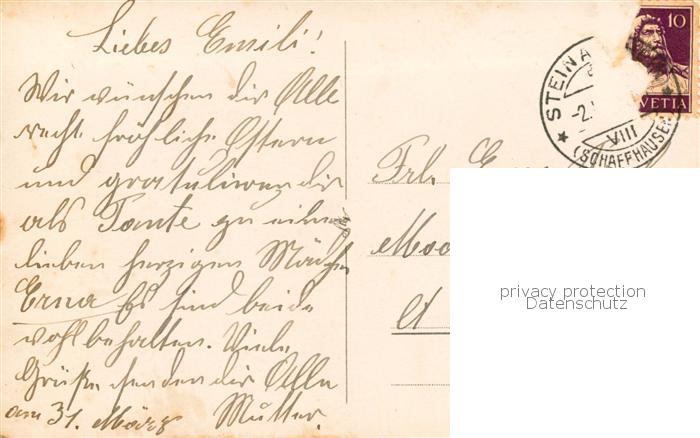 Liebes Emili!
Wir wünschen dir Alle
recht fröhliche Ostern
und gratulieren dir
als Tante zu einem
lieben herzigen Mädchen
Erna Es sind beide
wohlbehalten. Viele
Grüße senden dir Alle
am 31. März Mutter.
Frl. E
Moo
10
HELVETIA
STEIN A
-2.
VIII
(SCHAFFHAUSEN
privacy protection
Datenschutz